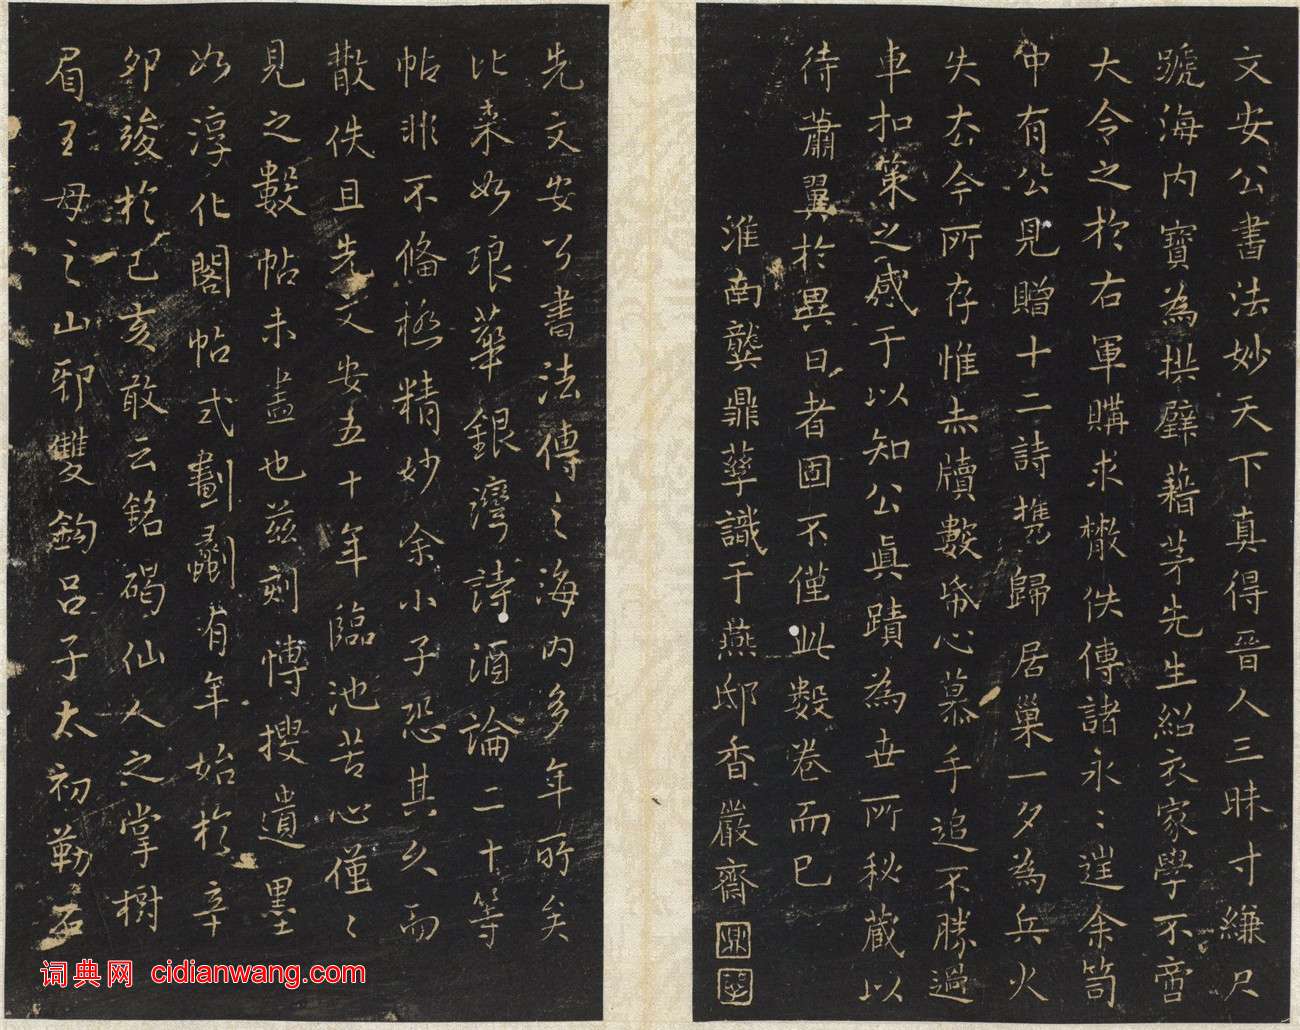 文安公書法妙天下真得晉人三昧寸縑尺
蹏海内寶為拱璧藉茅先生紹衣家學不啻
大令之於右軍購求散佚傳諸永永余笥
中有公見贈十二詩携歸居巢一夕為兵火
失去今所存惟赤牘數帋心慕手追不勝過
車扣策之感于以知公真蹟為世所秘藏以
待蕭翼於異日者固不僅此數卷而已
淮南龔鼎孳識于燕邸香嚴齋
先文安公書法傳之海内多年所矣
比來如琅華館銀灣詩酒論二十等
帖非不備極精妙余小子恐其久而
散佚且先文安五十年臨池苦心僅僅
見之數帖未盡也兹刻慱搜遺墨
如淳化閣帖式劃劂有年始於辛
卯竣於己亥敢云銘碣仙人之掌樹
眉王母之山邪雙鈎呂子太初勒石
词典网 cidianwang.com